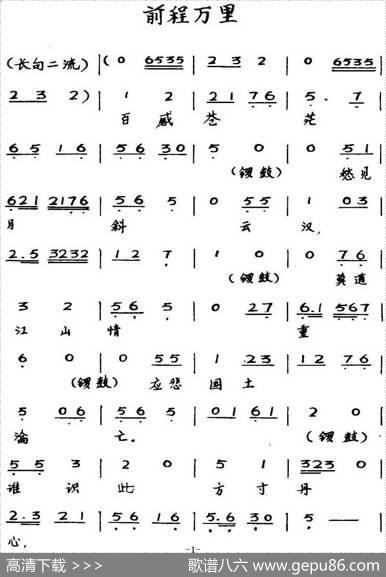 前程万里
(长句二流) | (0 6535 | 2 3 2 | 0 6535 |
2 3 2) | 1 2 | 21 76 | 5. 7 |
百 感 苍 茫
65 16 | 565 30 | 5 0 | 0 51 |
(锣鼓) 愁见
621 2176 | 56 5 | 0 55 | 1 03 |
月 斜 云 汉,
2.5 3232 | 12 7 | 1 0 | 0 76 |
(锣鼓) 莫道
3 2 | 56 5 | 0 27 | 6.1 567 |
江 山 情 重
6 0 | 0 55 | 1 .23 | 12 76 |
(锣鼓) 应悲 国 土
5 06 | 56 5 | 0161 | 2 0 |
沦 亡。 (锣鼓)
55 3 | 2 0 | 5 1 | 323 0 |
谁识 此 方 寸 丹
2.3 21 | 56 16 | 5.6 30 | 5 — |
心,
-1-
高清下载 >>>> 歌谱八六 www.gepu86.com